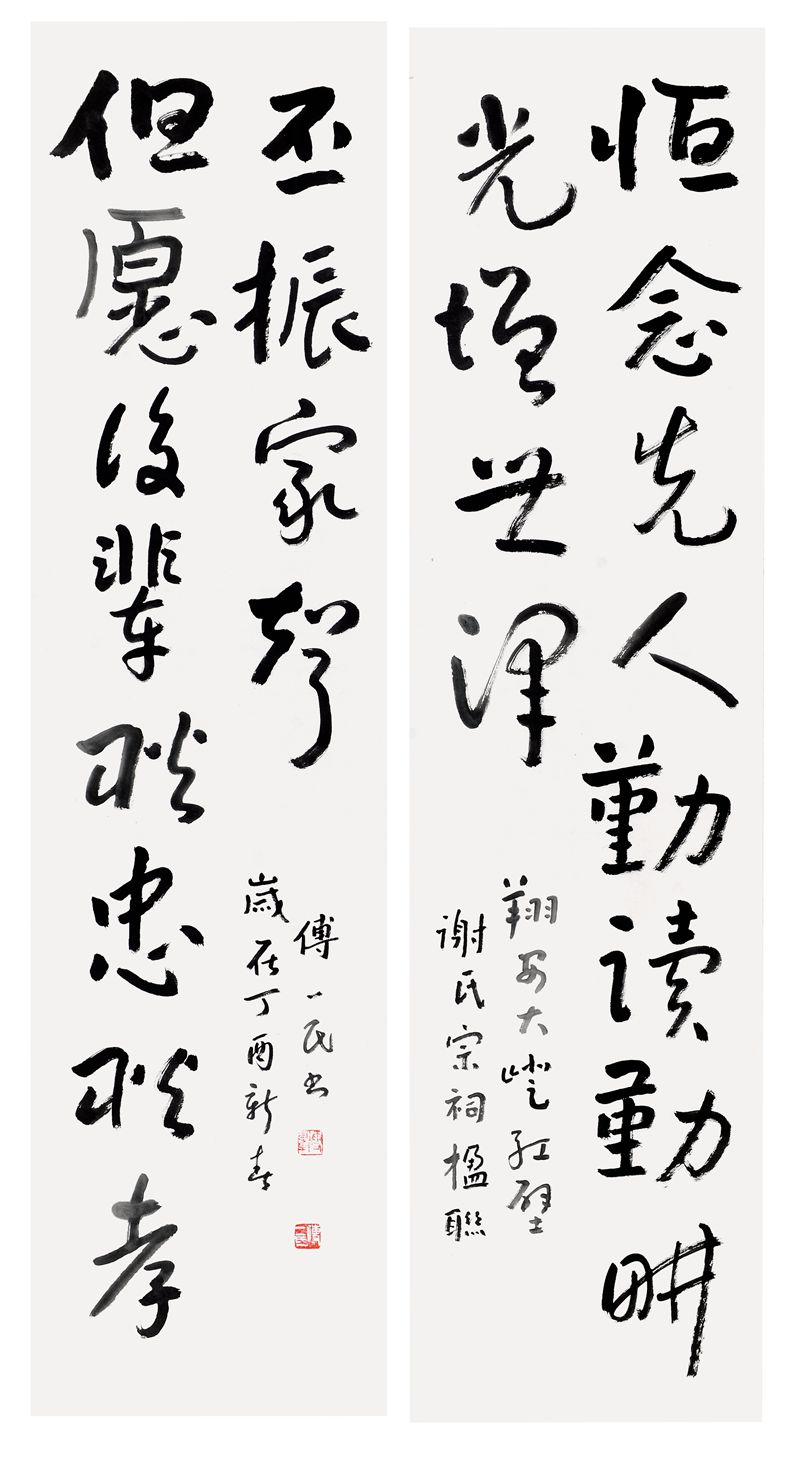 恒念先人勤讀勤畊
光增世澤
翔安大嶝红壁
谢氏宗祠楹聯
但愿後輩耿忠耿孝
丕振家聲
歲在丁酉新春
傅一民书